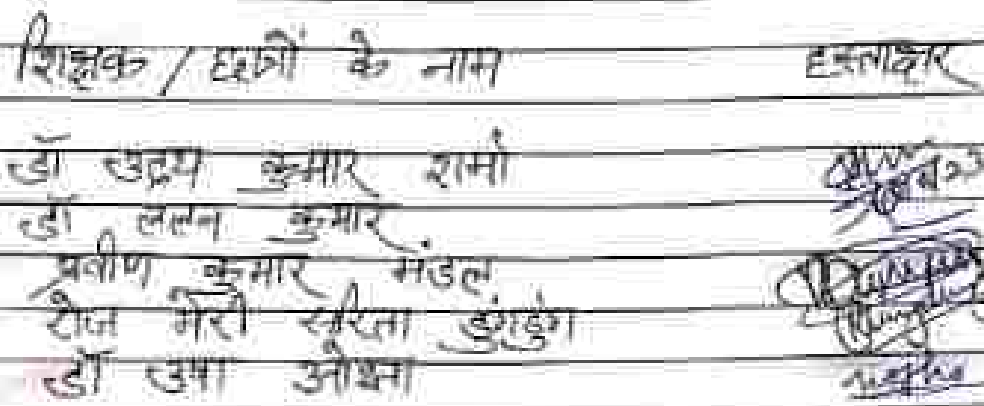 शिक्षक / छात्रों के नाम हस्ताक्षर
डॉ उदय कुमार शर्मा
डॉ ललन कुमार
प्रवीण कुमार मंडल
रोज मेरी सरिता डुंगडुंग
डॉ उषा ओझा